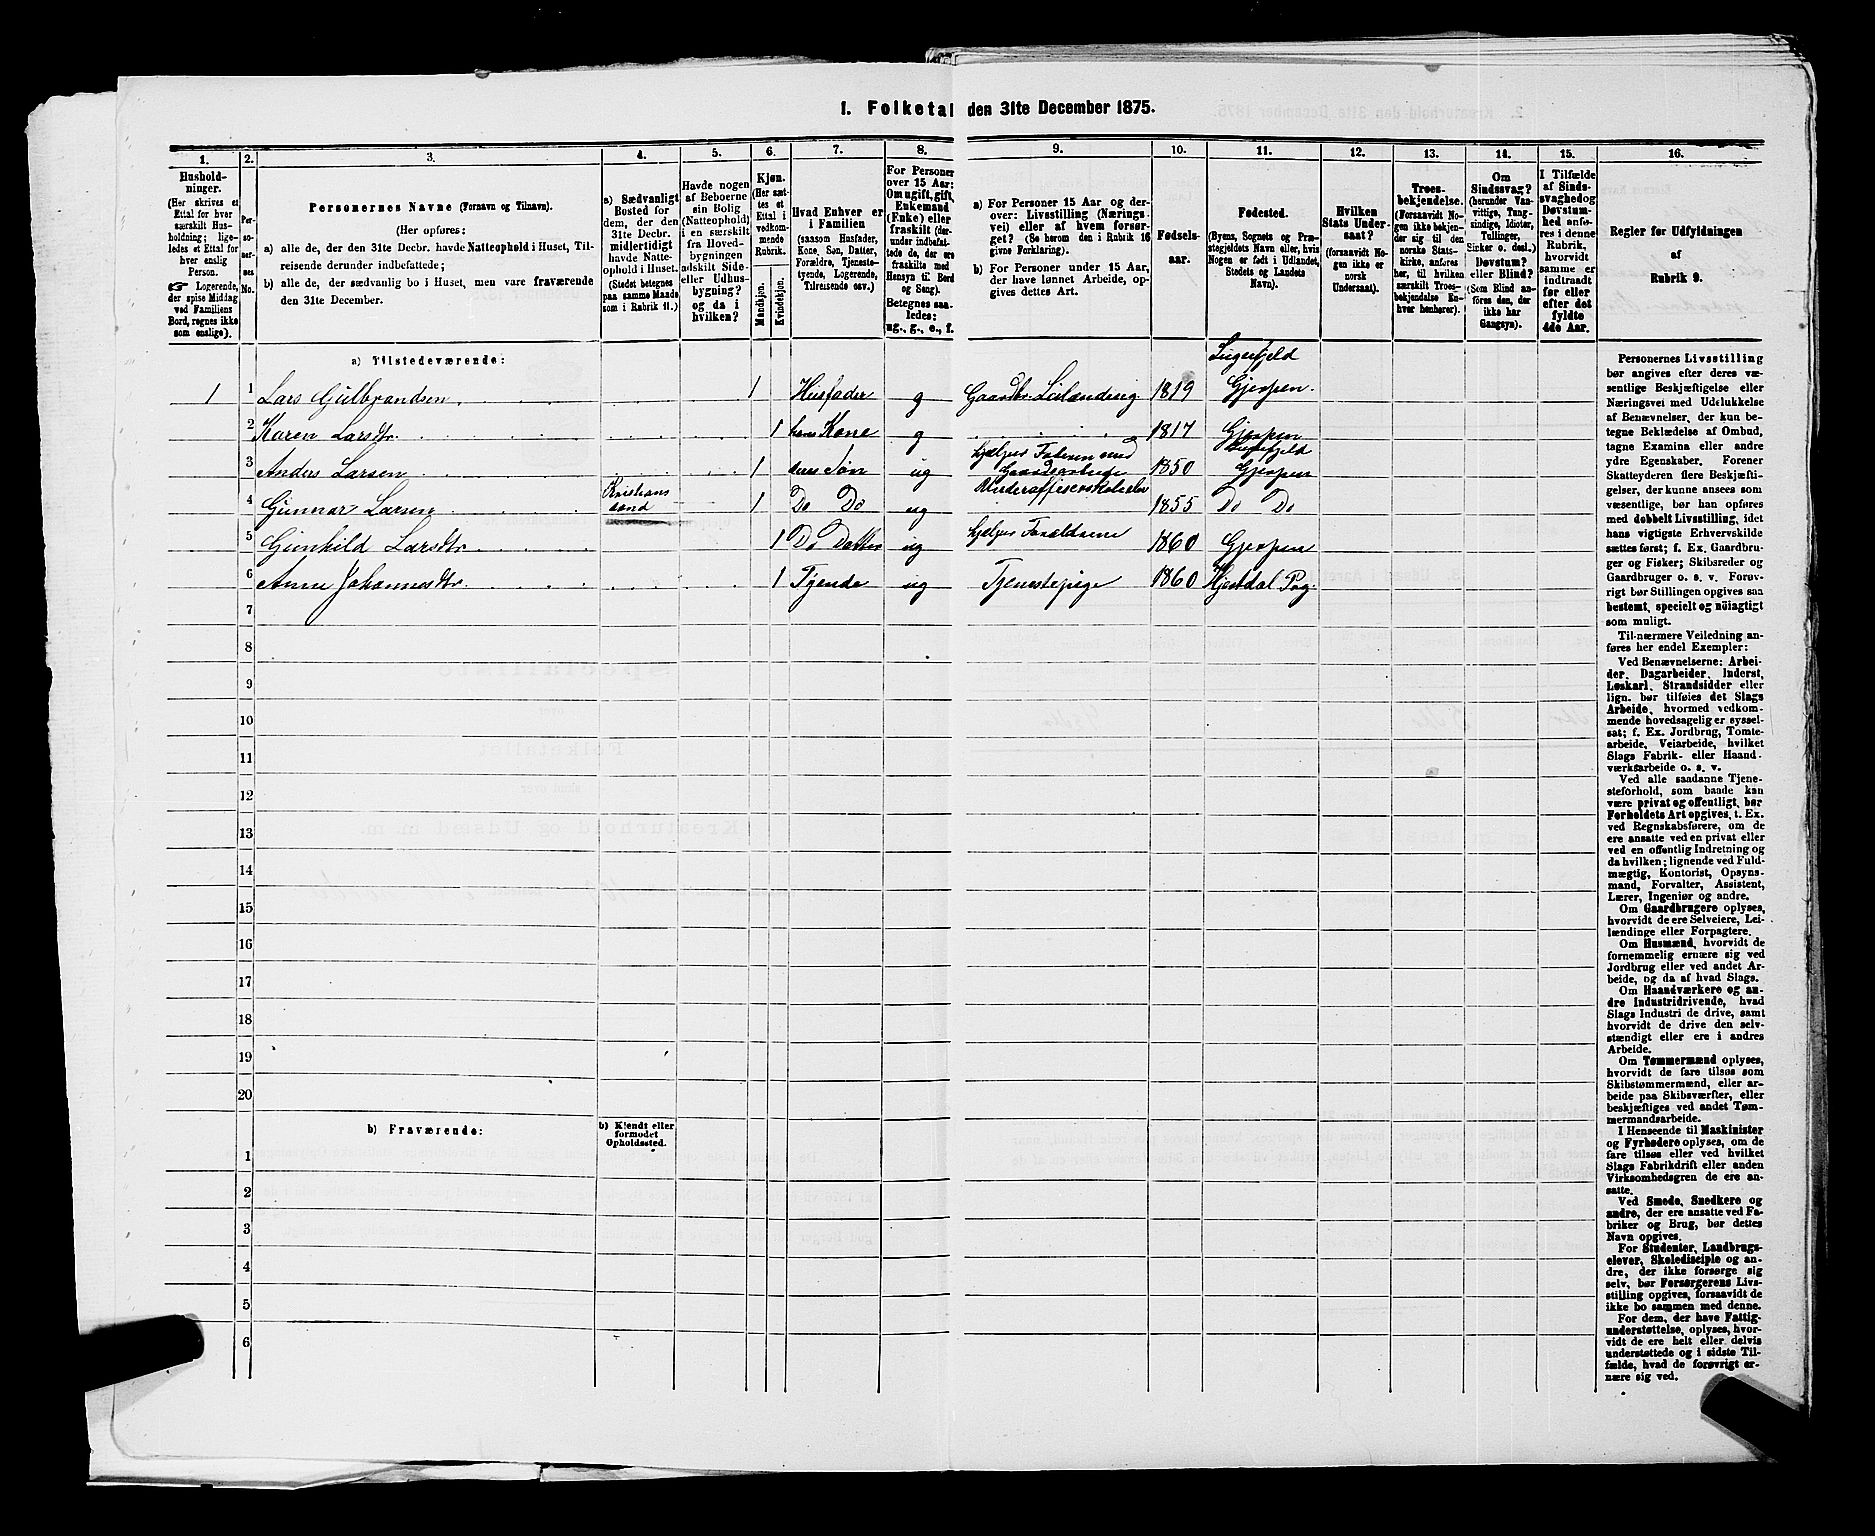 1. Folketal den 31te December 1875.
1.
2.
3.
4.
5.
6.
7.
8.
9.
10.
11.
12.
13.
14.
15.
16.
Hushold-
ninger.
(Her skrives et
Ettal for hver
særskilt Hus-
holdning; lige-
ledes et Ettal for
hver enslig
Person.
☛ Logerende,
der spise Middag
ved Familiens
Bord, regnes ikke
som enslige).
Per-
so-
ner-
nes
No.
Personernes Navne (Fornavn og Tilnavn).
(Her opføres:
a) alle de, der den 31te Decbr. havde Natteophold i Huset, Til-
reisende derunder indbefattede;
b) alle de, der sædvanlig bo i Huset, men vare fraværende
den 31te December.
a) Sædvanligt
Bosted for
dem, der den
31te Decbr.
midlertidigt
havde Natte-
ophold i Huset.
(Stedet betegnes
paa samme Maade
som i Rubrik 11.)
Havde nogen
af Beboerne
sin Bolig
(Natteophold)
i en særskilt
fra Hoved-
bygningen
adskilt Side-
eller Udhus-
bygning?
og da i
hvilken?
Kjøn.
(Her sæt-
tes et
Ettal i
vedkom-
mende
Rubrik.)
Mandkjøn.
Kvindekjøn.
Hvad Enhver er
i Familien
(saasom Husfader,
Kone, Søn, Datter,
Forældre, Tjeneste-
tyende, Logerende,
Tilreisende osv.)
For Personer
over 15 Aar:
Om ugift, gift,
Enkemand
(Enke) eller
fraskilt (der-
under indbefat-
tede de, der ere
fraskilte med
Hensyn til Bord
og Seng).
Betegnes saa-
ledes:
ug., g., e., f.
a) For Personer 15 Aar og der-
over: Livsstilling (Nærings-
vei) eller af hvem forsør-
get? (Se herom den i Rubrik 16
givne Forklaring).
b) For Personer under 15 Aar,
der have lønnet Arbeide, op-
gives dettes Art.
Fødsels-
aar.
Fødested.
(Byens, Sognets og Præ-
stegjeldets Navn eller, hvis
Nogen er født i Udlandet,
Stedets og Landets
Navn).
Hvilken
Stats Under-
saat?
(forsaavidt No-
gen ikke er
norsk
Undersaat).
Troes-
bekjendelse.
(Forsaavidt No-
gen ikke bekjen-
der sig til den
norske Stats-
kirke, anføres
her, til hvilken
særskilt Troes-
bekjendelse En-
hver henhører).
Om
Sindssvag?
(herunder Vaan-
vittige, Tung-
sindige, Idioter,
Tullinger,
Sinker o. desl.)
Døvstum?
eller Blind?
(Som Blind an-
føres den, der
ikke har
Gangsyn).
I Tilfælde
af Sinds-
svaghed og
Døvstum-
hed anfø-
res i denne
Rubrik,
hvorvidt
samme er
indtraadt
før eller
efter det
fyldte
4de Aar.
Regler for Udfyldningen
af
Rubrik 9.
a) Tilstedeværende:
1 1 Lars Gulbrandsen 1 Husfader g Gaardbr. Leilænding 1819 Gjerpen.
2 Karen Larsdtr. 1 hans Kone g 1817 Gjerpen
3 Anders Larsen 1 deres Søn ug Hjelper Faderen med
Gaardsarbeide 1850 Gjerpen
4 Gunnar Larsen Kristians
sand 1 Do Do ug 1855 Do Do
5 Gunhild Larsdtr 1 Do Datter ug hjelper Forældrene 1860 Gjerpen
6 Anne Johannesdtr. 1 Tjende ug Tjenestepige 1860 Hjertdal Prg.
7
8
9
10
11
12
13
14
15
16
17
18
19
20
b) Fraværende:
b) Kjendt eller
formodet
Opholdssted.
1
2
3
4
5
6
Personernes Livsstilling
bør angives efter deres væ-
sentlige Beskjæftigelse eller
Næringsvei med Udelukkelse
af Benævnelser, der kun be-
tegne Beklædelse af Ombud,
tagne Examina eller andre
ydre Egenskaber. Forener
Skatteyderen flere Beskjæfti-
gelser, der kunne ansees som
væsentlige, bør han opføres
med dobbelt Livsstilling, idet
hans vigtigste Erhvervskilde
sættes først; f. Ex. Gaardbru-
ger og Fisker; Skibsreder og
Gaardbruger o. s. v. Forøv-
rigt bør Stillingen opgives saa
bestemt, specielt og nøiagtigt
som muligt.
Til nærmere Veiledning an-
føres her endel Exempler:
Ved Benævnelserne: Arbei-
der, Dagarbeider, Inderst,
Løskarl, Strandsidder eller
lign. bør tilføies det Slags
Arbeide, hvormed vedkom-
mende hovedsagelig er syssel-
sat; f. Ex. Jordbrug, Tomte-
arbeide, Veiarbeide, hvilket
Slags Fabrik- eller Haand-
værksarbeide o. s. v.
Ved alle saadanne Tjene-
steforhold, som baade kan
være privat og offentligt, bør
Forholdets Art opgives, t. Ex.
ved Regnskabsførere, om de
ere ansatte ved en privat eller
ved en offentlig Indretning og
da hvilken; lignende ved Fuld-
mægtig, Kontorist, Opsyns-
mand, Forvalter, Assistent,
Lærer, Ingeniør og andre.
Om Gaardbrugere oplyses,
hvorvidt de ere Selveiere, Lei-
lændinge eller Forpagtere.
Om Husmænd, hvorvidt de
fornemmelig ernære sig ved
Jordbrug eller ved andet Ar-
beide, og da af hvad Slags.
Om Haandværkere og an-
dre Industridrivende, hvad
Slags Industri de drive, samt
hvorvidt de drive den selv-
stændigt eller ere i andres
Arbeide.
Om Tømmermænd oplyses,
hvorvidt de fare tilsøs som
Skibstømmermænd, eller ar-
beide paa Skibsværfter, eller
beskjæftiges ved andet Tøm-
mermandsarbeide.
I Henseende til Maskinister
og Fyrbødere oplyses, om de
fare tilsøs eller ved hvilket
Slags Fabrikdrift eller anden
Virksomhedsgren de ere an-
satte.
Ved Smede, Snedkere og
andre, der ere ansatte ved Fa-
briker og Brug, bør dettes
Navn opgives.
For Studenter, Landbrugs-
elever, Skoledisciple og an-
dre, der ikke forsørge sig
selv, bør Forsørgerens Livs-
stilling opgives, forsaavidt de
ikke bo sammen med denne.
For dem, der have Fattig-
understøttelse, oplyses, hvor-
vidt de ere helt eller delvis
understøttede og i sidste Til-
fælde, hvad de forøvrigt er-
nære sig ved.